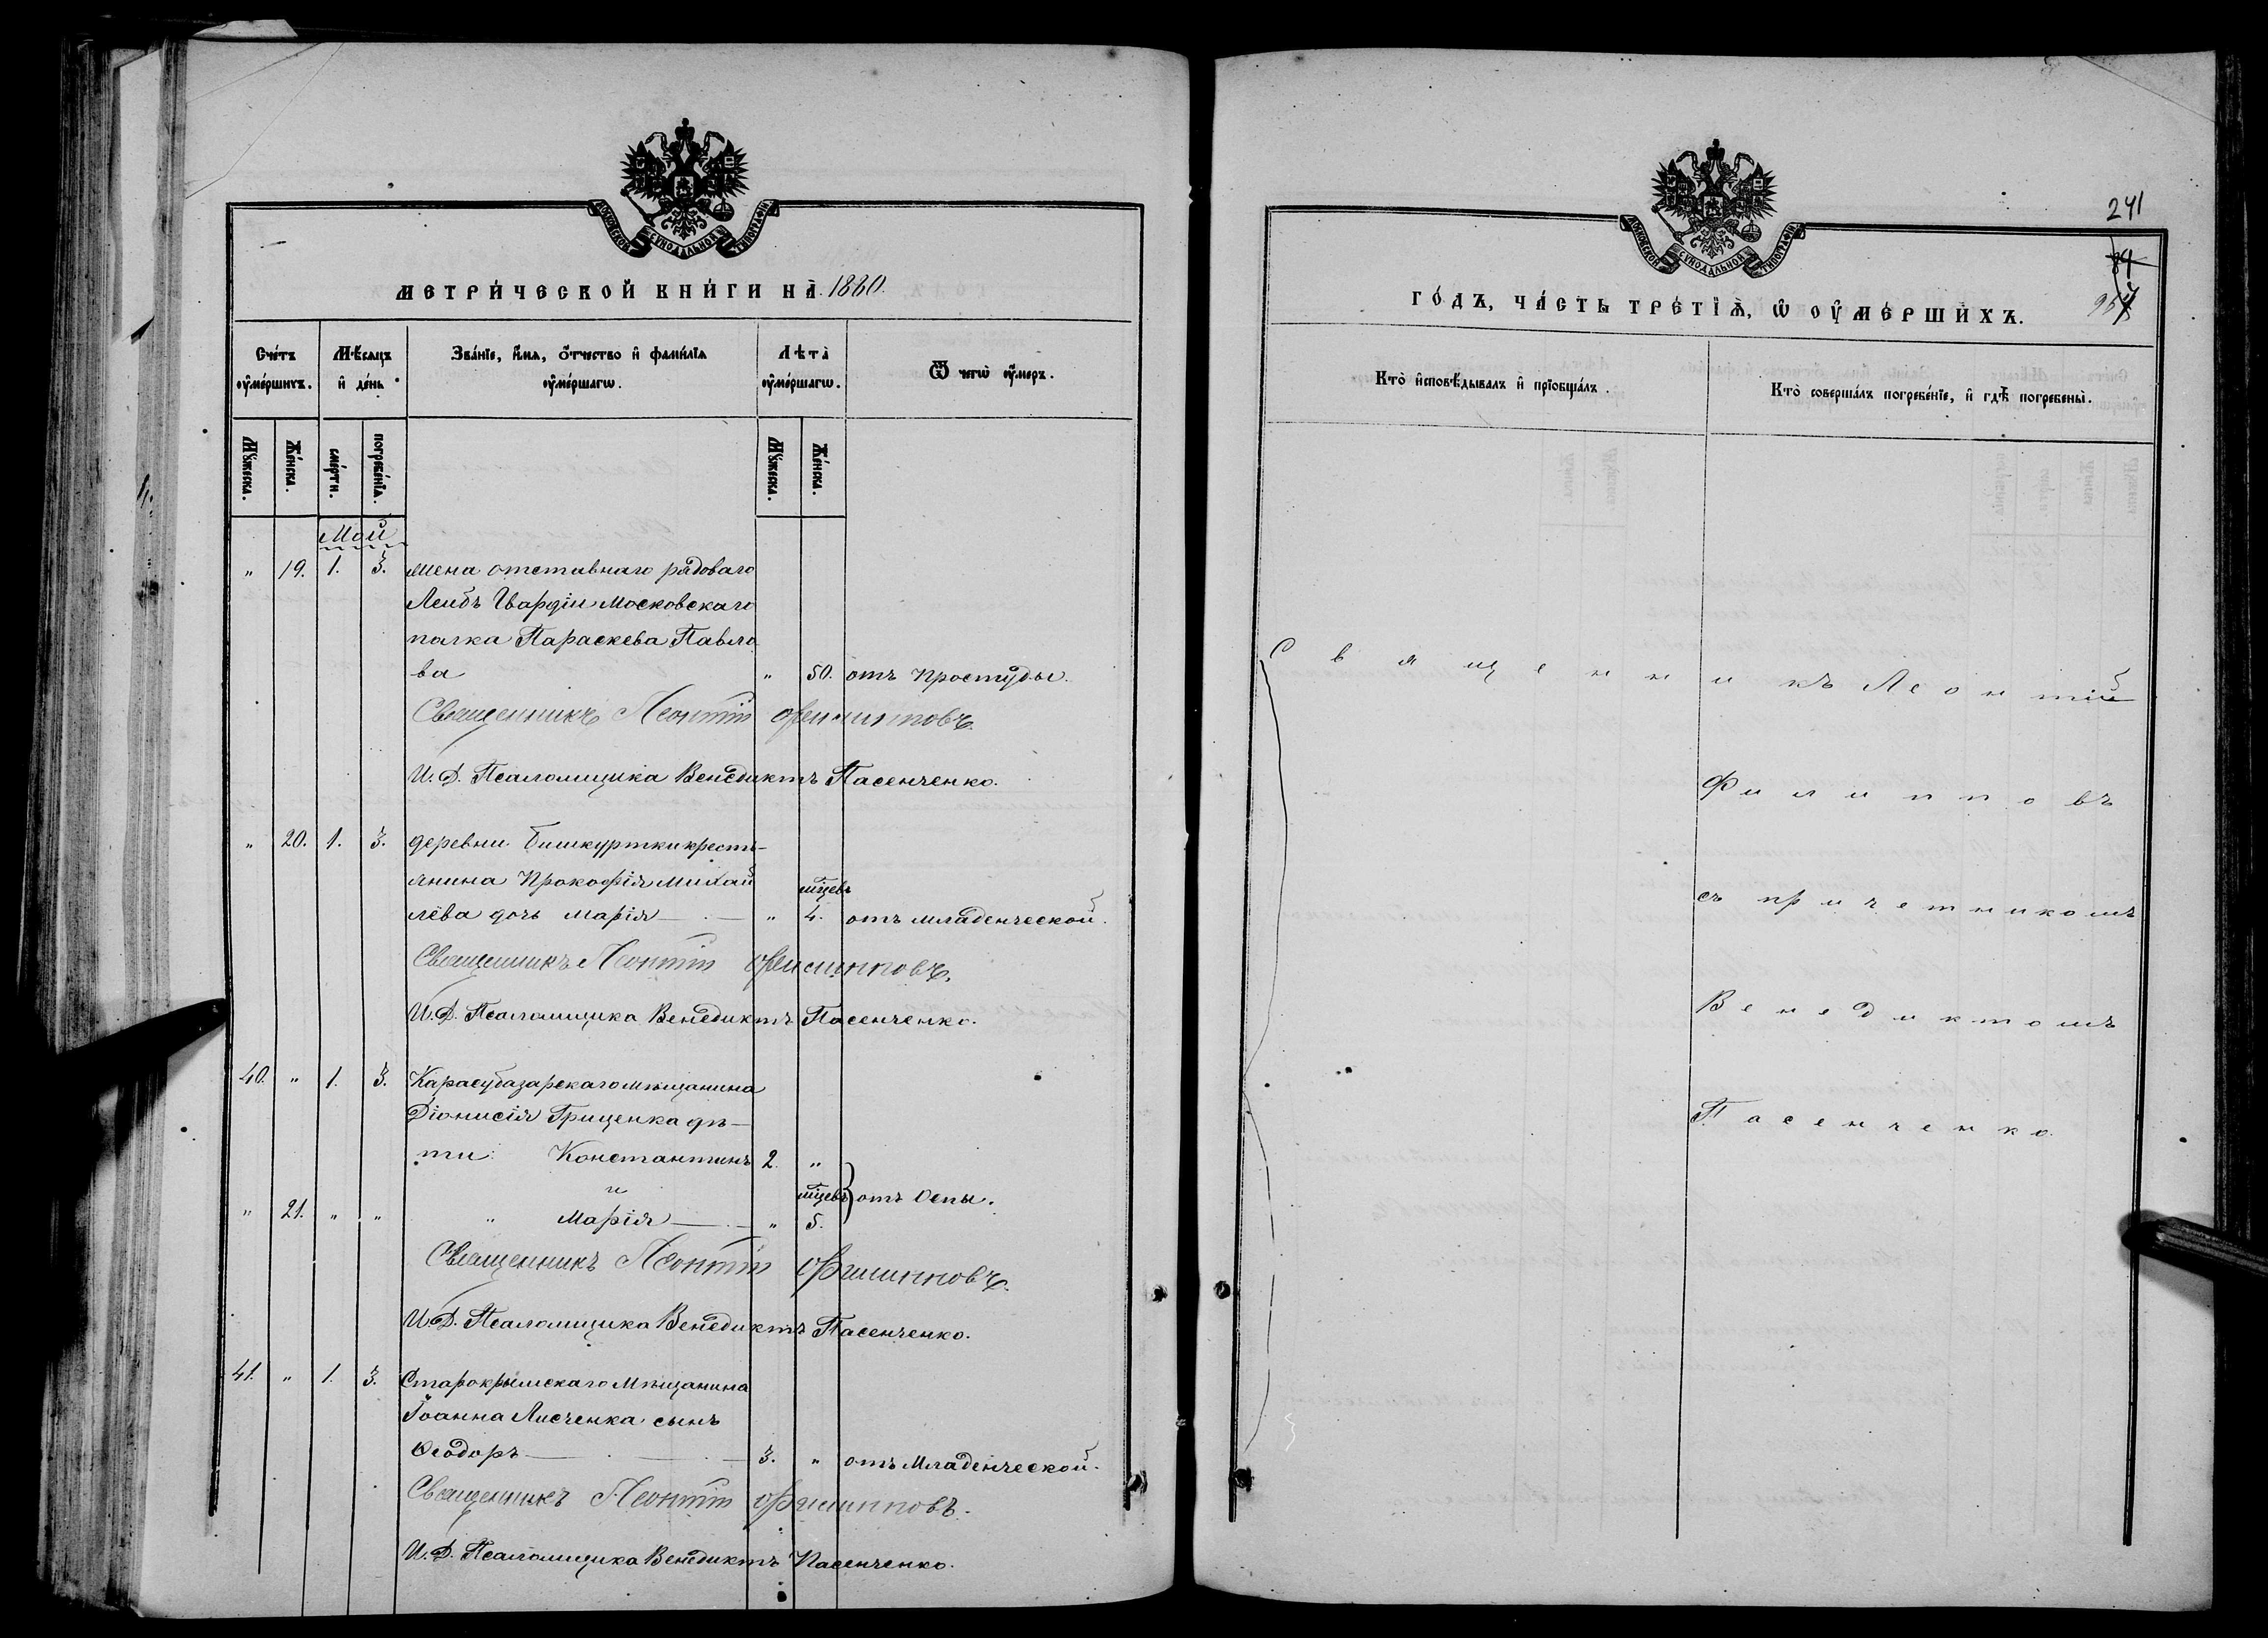 МОСКОВСКОЙ СУНОДАЛЬНОЙ ТИПОГРАФІИ
МЕТРИЧЕСКОЙ КНИГИ НА 1880.
Счетъ оумершихъ.
Мѣсяцъ и день
Званіе, имя, отчество и фамилія оумершагѡ.
Лѣта оумершагѡ.
Ѿ чегѡ оумеръ.
Мужеска.
Женска.
смерти.
погребенія.
Мужеска.
Женска.
Май
" 19. 1. 3. жена отставнаго рядоваго
Лейбъ Гвардіи Московскаго
полка Параскева Павло
ва " 50. отъ простуды.
Священникъ Леонтій Филипповъ
И. Д. Псаломщика Венедиктъ Пасенченко.
" 20. 1. 3. деревни Бишкуртки кресть-
янина Прокофія Михай
мѣсяцевъ
лёва дочь Марія " 4. отъ младенческой.
Священникъ Леонтій Филипповъ.
И. Д. Псаломщика Венедиктъ Пасенченко.
40. " 1. 3. Карасубазарскаго мѣщанина
Діонисія Гриценка дѣ-
ти: Константинъ 2. "
и мѣсяцевъ отъ Оспы.
" 21. " " " Марія " 5.
Священникъ Леонтій Филипповъ.
И. Д. Псаломщика Венедиктъ Пасенченко.
41. " 1. 3. Старокрымскаго мѣщанина
Іоанна Лисченка сынъ
Ѳеодоръ 3. " отъ Младенческой.
Священникъ Леонтій Филипповъ.
И. Д. Псаломщика Венедиктъ Пасенченко.
241
МОСКОВСКОЙ СУНОДАЛЬНОЙ ТИПОГРАФІИ
ГОДЪ, ЧАСТЬ ТРЕТІЯ, Ѡ ОУМЕРШИХЪ.
Кто исповѣдывалъ и пріобщалъ.
Кто совершалъ погребеніе, и гдѣ погребены.
Священникъ Леонтій
Филипповъ
съ причетникомъ
Венедиктомъ
Пасенченко.